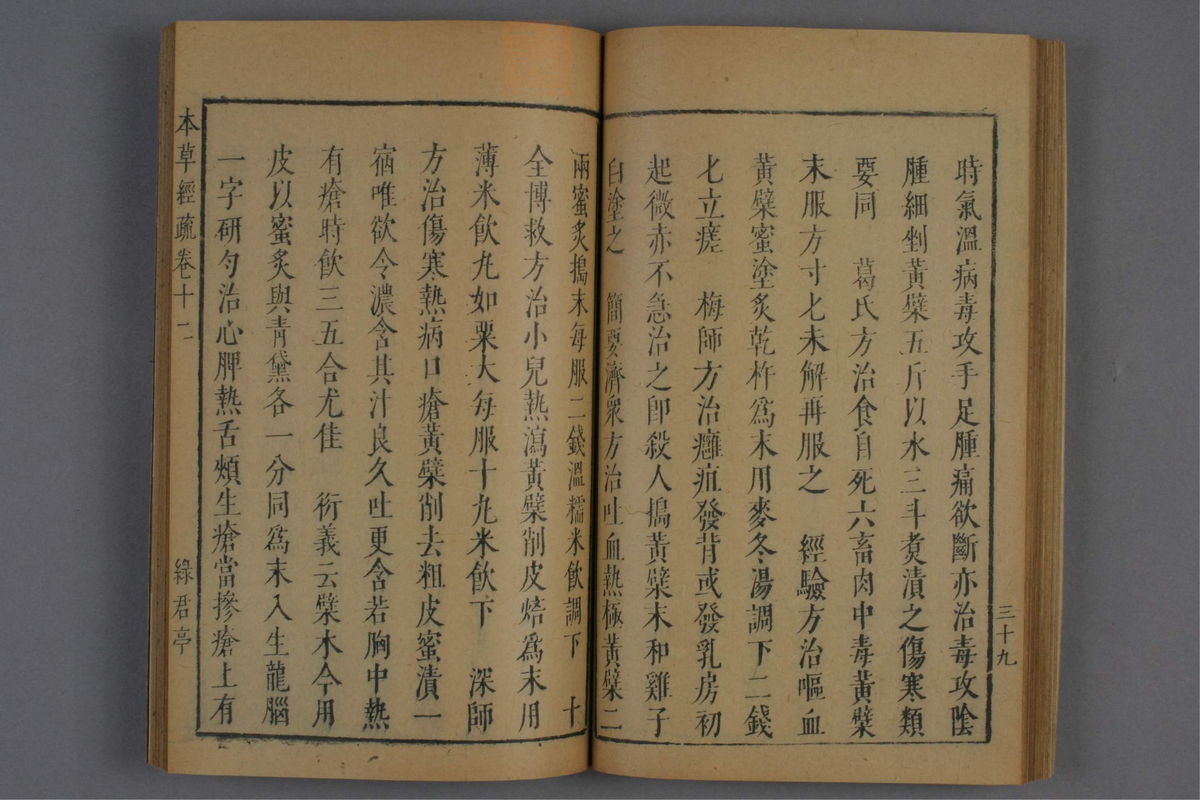 時氣溫病毒攻手足腫痛欲斷亦治毒攻陰
腫細剉黃檗五斤以水三斗煮漬之傷寒類
要同　葛氏方治食自死六畜肉中毒黃檗
末服方寸匕未解再服之　經驗方治嘔血
黃檗蜜塗炙乾杵爲末用麥冬湯調下二錢
匕立瘥　梅師方治癰疽發背或發乳房初
起微赤不急治之卽殺人搗黃檗末和雞子
白塗之　簡要濟衆方治吐血熱極黃檗二
三十九
兩蜜炙搗末每服二錢溫糯米飲調下　十
全博救方治小兒熱瀉黃檗削皮焙爲末用
薄米飲丸如粟大每服十丸米飲下　深師
方治傷寒熱病口瘡黃檗削去粗皮蜜漬一
宿唯欲令濃含其汁良久吐更含若胸中熱
有瘡時飲三五合尤佳　衍義云檗木今用
皮以蜜炙與靑黛各一分同爲末入生龍腦
一字研勻治心脾熱舌頰生瘡當摻瘡上有
本草經疏卷十二
綠君亭